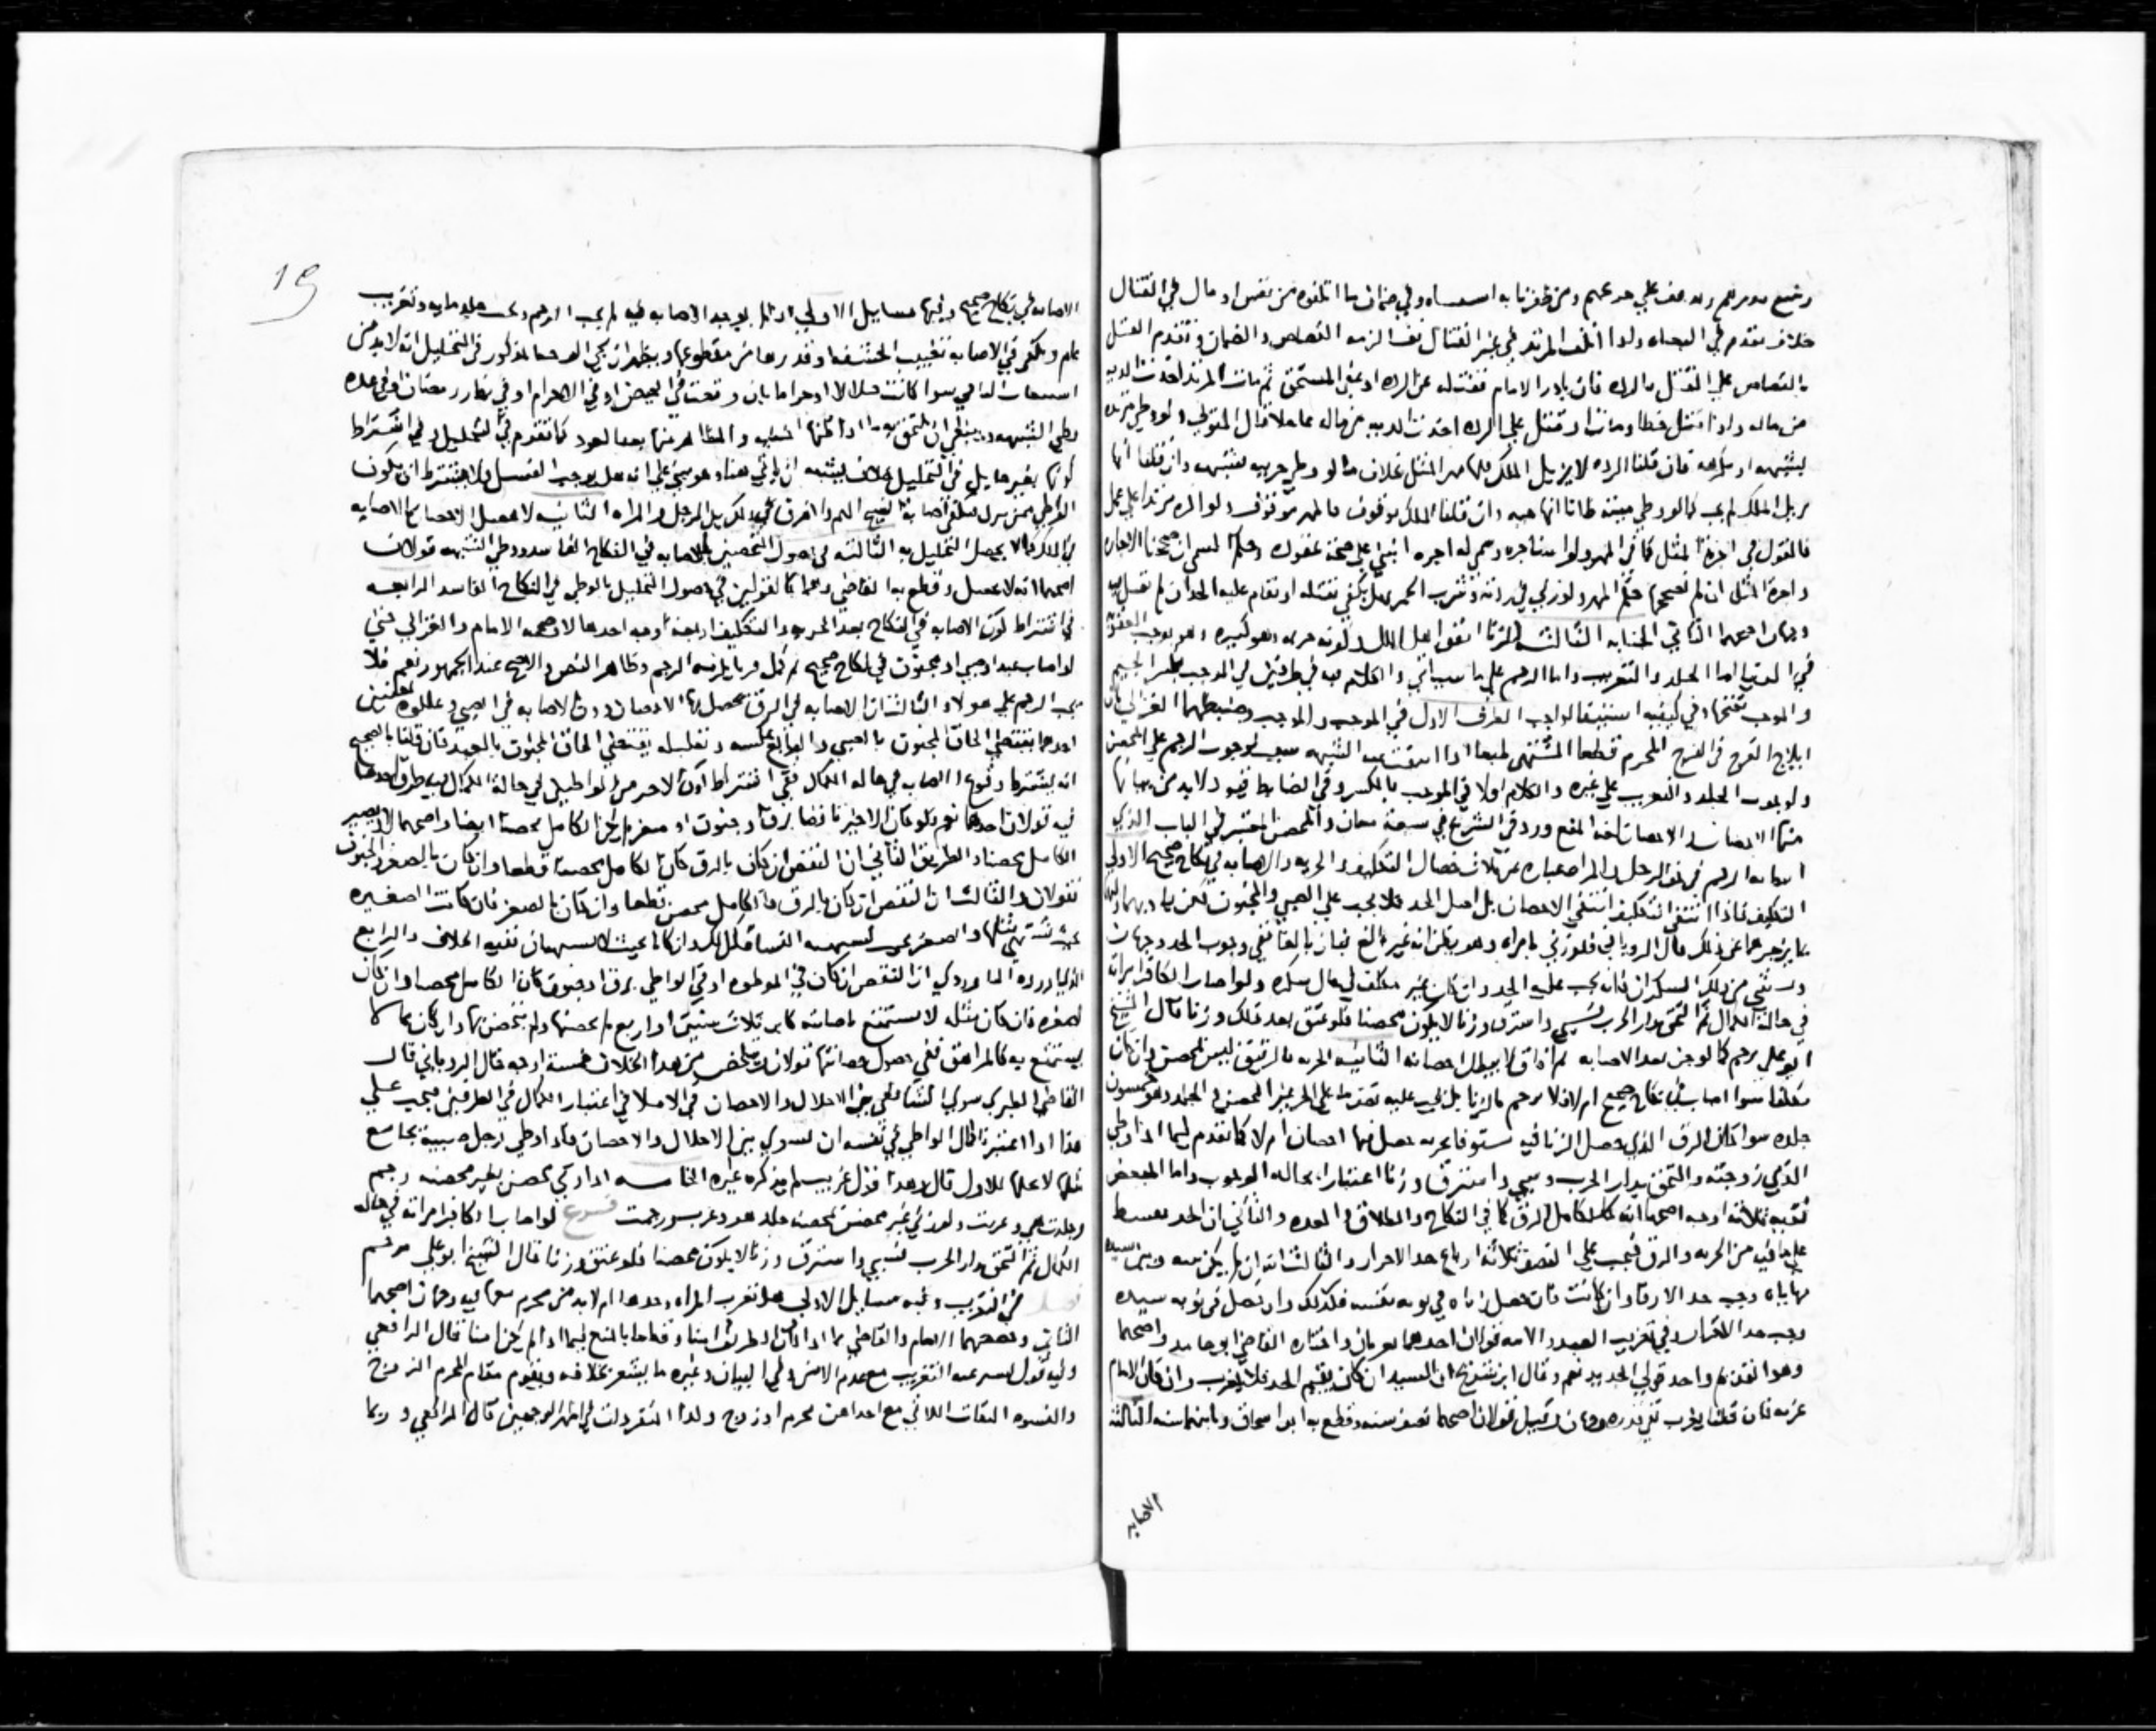 ومن ظفرنا به وفي ضمان ما اتلفوه من نفس او مال في القتال
خلاف تقدم في البغاه واذا اتلف المرتد في غير القتال نفسا لزمه القصاص والضمان وتقدم القتل
بالقصاص على القتل بالرده فان بادر الامام فقتله عن الرده او عفى المستحق ثم مات المرتد اخذت الديه
من ماله واذا قتل خطا ومات او قتل على الرده اخذت الديه من ماله عاجلا قال المتولي ولو وطي مرتده
بشبهه او مكرهه فان قلنا الرده لا يزيل الملك فلها مهر المثل بخلاف ما لو وطي حربيه بشبهه وان قلنا انها
يزيل الملك لم يجب كما لو وطي ميته ظانا انها حيه وان قلنا الملك موقوف فالمهر موقوف ولو اكره مرتدا على عمل
فالقول في اجرة المثل كما في المهر ولو استاجره وسمى له اجره انبنى على صحة عقوده
واجرة المثل ان لم نصححها حكم المهر ولو زنى في ردته او شرب الخمر فهل يكفي بقتله او تقام عليه الحد ان لم
وجهان اصحهما الثاني الجنايه الثالثه الزنا اتفق اهل الملل وهو كبيره
في الدنيا اما الجلد والتغريب واما الرجم على ما سياتي والكلام فيه في طرفين في الموجب بكسر الجيم
والموجب بفتحها وفي كيفيه استيفا الواجب الطرف الاول في الموجب والموجب وضبطهما الغزالي بان
ايلاج الفرج في الفرج المحرم قطعا المشتهى طبعا اذا انتفت عنه الشبهه سبب لوجوب الرجم على المحصن
ولوجوب الجلد والتغريب على غيره والكلام اولا في الموجب بالكسر وفي الضابط قيود لابد من بيانها
منها الاحصان والاحصان لغة المنع وورد في الشرع في سبعة معان والمحصن المعتبر في الباب الذي
الرجم في الرجل والمراه عباره عن ثلاث خصال التكليف والحريه والاصابه في نكاح صحيح الاولى
التكليف فاذا انتفى التكليف انتفى الاحصان بل اصل الحد فلا يجب على الصبي والمجنون لكن
بما يزجرهما عن ذلك قال الروياني فلو زنى بامراه وهو يظن انه غير بالغ فبان بالغا ففي وجوب الحد وجهان
ويستثنى من ذلك السكران فانه يجب عليه الحد وان كان غير مكلف في حال سكره ولو اصاب الكافر امراته
في حالة الكمال ثم التحق بدار الحرب فسبي واسترق وزنا لا يكون محصنا فلو عتق بعد ذلك وزنا قال الشيخ
ابو علي يرجم كما لو جن بعد الاصابه ثم افاق لا يبطل احصانه الثانيه الحريه فالرقيق ليس بمحصن وان كان
مكلفا سوا اصاب في نكاح صحيح ام لا فلا يرجم بالزنا بل يجب عليه نصف ما على الحر غير المحصن في الجلد وهو خمسون
جلده سوا كان الرق الذي حصل الزنا فيه حصل فيها احصان ام لا كما تقدم فيما اذا وطي
الذمي زوجته والتحق بدار الحرب وسبي واسترق وزنا اعتبارا بحاله الوجوب واما المبعض
ففيه ثلاثه اوجه اصحها انه كالكامل الرق كما في النكاح والطلاق والعده والثاني ان الحد يقسط
على ما فيه من الحريه والرق فيجب على النصف ثلاثه ارباع حد الاحرار والثالث انه ان لم يكن بينه وبين سيده
مهاياه وجب حد الارقا وان كانت فان حصل زناه في نوبه نفسه فكذلك وان حصل في نوبه سيده
وفي تغريب العبد والامه قولان احدهما لا يغربان واختاره القاضي ابو حامد واصحهما
وهو القديم واحد قولي الجديد نعم وقال ابن شريح ان السيد ان كان يقيم الحد فلا يغرب وان كان الامام
غربه فان قلنا يغرب ففي قدره وجهان وقيل قولان اصحهما نصف سنه وقطع به ابو اسحاق وثانيهما سنه الثالثه
الاصابه
19
الاصابه في نكاح صحيح وفيها مسايل الاولى اذا لم يوجد الاصابه فيه لم يجب الرجم ويجب جلد مايه وتغريب
عام ويكفي في الاصابه تغييب الحشفه او قدرها من مقطوعها ويظهر ان يجي الوجه المذكور في التحليل انه لابد من
سوا كانت حلالا او حراما بان وقعت في الحيض او في الاحرام او في نهار رمضان او في عده
وطي الشبهه وينبغي ان يلتحق به ما اذا ظنها اجنبيه والمظاهر منها بعد العود كما تقدم في التحليل وفي اشتراط
كونها بغير حايل في التحليل خلاف يشبه ان ياتي هنا وهو مبني على انه هل يوجب الغسل ولا يشترط ان يكون
الواطي ممن ينزل فيكفي اصابه الثانيه لا يحصل الاحصان بالاصابه
في الملك كما لا يحصل التحليل به الثالثه في حصول التحصين بالاصابه في النكاح الفاسد ووطي الشبهه قولان
اصحهما انه لا يحصل وقطع به القاضي وهما كالقولين في حصول التحليل بالوطي في النكاح الفاسد الرابعه
في اشتراط كون الاصابه في النكاح بعد الحريه والتكليف اربعه اوجه احدها لا وصححه الامام والغزالي فمتى
لو اصاب عبد او صبي او مجنون في نكاح صحيح ثم كمل وزنا يلزمه الرجم وظاهر النص والاصح عند الجمهور نعم فلا
يجب الرجم على هولاء الثالث ان الاصابه في الرق تحصل بها الاحصان دون الاصابه في الصبي وعللوه
احدهما يقتضي الحاق المجنون بالصبي والرابع عكسه وتعليله يقتضي الحاق المجنون بالعبد فان قلنا بالصحيح
انه يشترط وقوع الاصابه في حاله الكمال ففي اشتراط كون الاخر من الواطيين في حالة الكمال طرق احدها
فيه قولان احدهما نعم فلو كان الاخر ناقصا برق او جنون او صغر لم يكن الكامل محصنا ايضا واصحهما لا ويصير
الكامل محصنا والطريق الثاني ان النقص ان كان بالرق كان الكامل محصنا قطعا وان كان بالصغر والجنون
فقولان والثالث ان النقص ان كان بالرق فالكامل محصن قطعا وان كان بالصغر فان كانت الصغيره
بحيث تشتهى مثلها والصغير يشتهيه النسا فكذلك وان كانا بحيث لا يشتهيان ففيه الخلاف والرابع
الذي اورده الماوردي ان النقص ان كان في الموطوءه او في الواطي برق او جنون كان الكامل محصنا وان كان
لصغره فان كان مثله لا يستمتع باصابته كابن ثلاث سنين او اربع لم يحصنها ولم يتحصن بها وان كان
يستمتع به كالمراهق ففي حصول حصانتها قولان ويتلخص من هذا الخلاف خمسة اوجه قال الروياني قال
القاضي الطبري سوى الشافعي بين الاحلال والاحصان في الاملا في اعتبار الكمال في الطرفين فيجب على
هذا اذا اعتبرنا كمال الواطي في نفسه ان نسوي بين الاحلال والاحصان فاذا وطي رجل صبية يجامع
مثلها لاحلها للاول قال وهذا قول غريب لم يذكره غيره الخامسه اذا زنى محصن بغير محصنه رجم
وجلدت هي وغربت ولو زنى غير محصن بمحصنه جلد هو وغرب ورجمت فــــرع لو اصاب الكافر امراته في حاله
الكمال ثم التحق بدار الحرب فسبي واسترق وزنا لا يكون محصنا فلو عتق وزنا قال الشيخ ابو علي يرجم
فصل في التغريب وفيه مسايل الاولى هل تغرب المراه وحدها ام لابد من محرم معها فيه وجهان اصحهما
الثاني وخصصهما الامام والقاضي بما اذا كان الطريق امنا وقطعا بالمنع فيما اذا لم يكن امنا قال الرافعي
التغريب مع عدم الامن وفي البيان وغيره ما يشعر بخلافه ويقوم مقام المحرم الزوج
والنسوه الثقات اللاتي مع احداهن محرم او زوج وكذا المنفردات في اظهر الوجهين قال الرافعي وربما